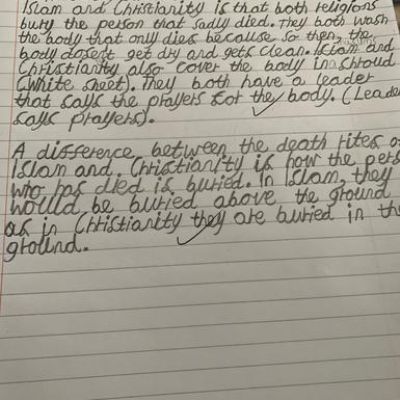 Islam and Christianity is that both religions
bury the person that sadly died. They both wash
the body that only dies because so then, the
body dosent get dry and gets clean. Islam and
Christianity also cover the body in a shroud
(White sheet). They both have a leader
that says the prayers for the body. (Leade
says prayers).
A difference between the death rites o
Islam and. Christianity is how the pers
who has died is buried. In Islam, they
would be buried above the ground
as in Christianity they are buried in th
ground.